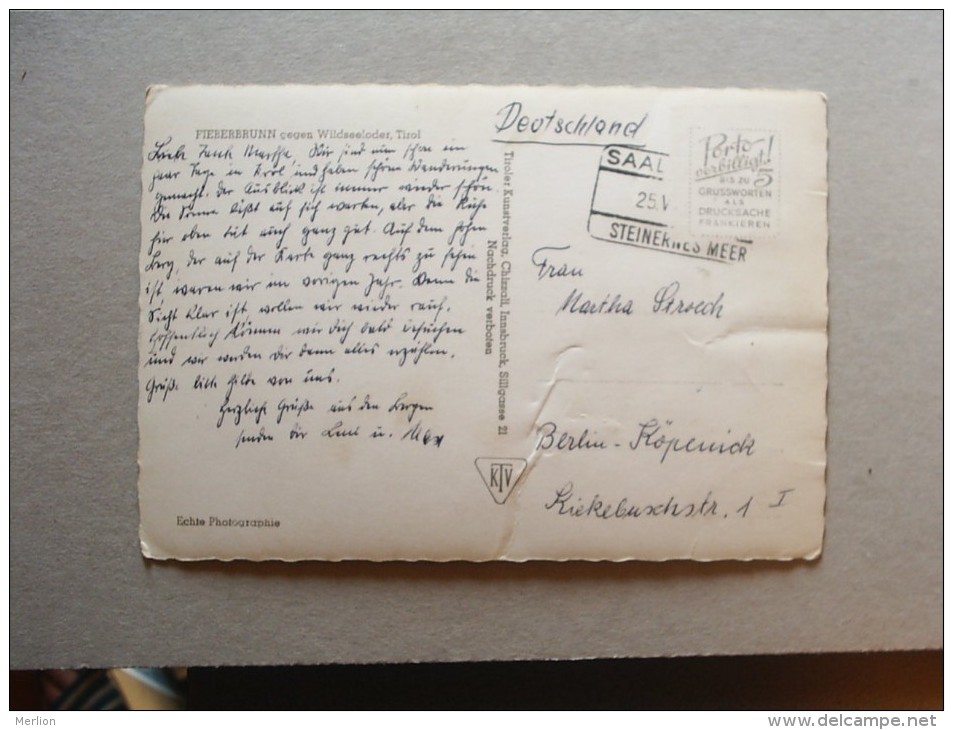 FIEBERBRUNN gegen Wildseeloder, Tirol
Liebe Tante Martha, Wir sind nun schon ein
paar Tage in Tirol und haben schöne Wanderungen
gemacht. Der Ausblick ist immer wieder schön.
Die Sonne läßt auf sich warten, aber die Ruhe
hier oben tut auch ganz gut. Auf dem hohen
Berg, der auf der Karte ganz rechts zu sehen
ist waren wir im vorigen Jahr. Wenn die
Sicht klar ist wollen wir wieder rauf.
Hoffentlich können wir Dich bald besuchen
und wir werden Dir dann alles erzählen.
Grüße bitte von uns.
Herzliche Grüße aus den Bergen
senden Dir Leni u. Max
Echte Photographie
Tiroler Kunstverlag, Chizzali, Innsbruck, Sillgasse 21
Nachdruck verboten
KTV
Deutschland
SAAL
25.V
STEINERNES MEER
Porto
verbilligt!
BIS ZU 5
GRUSSWORTEN
ALS
DRUCKSACHE
FRANKIEREN
Frau
Martha Stroech
Berlin-Köpenick
Kiekebuschstr. 1 I
Merlion
www.delcampe.net